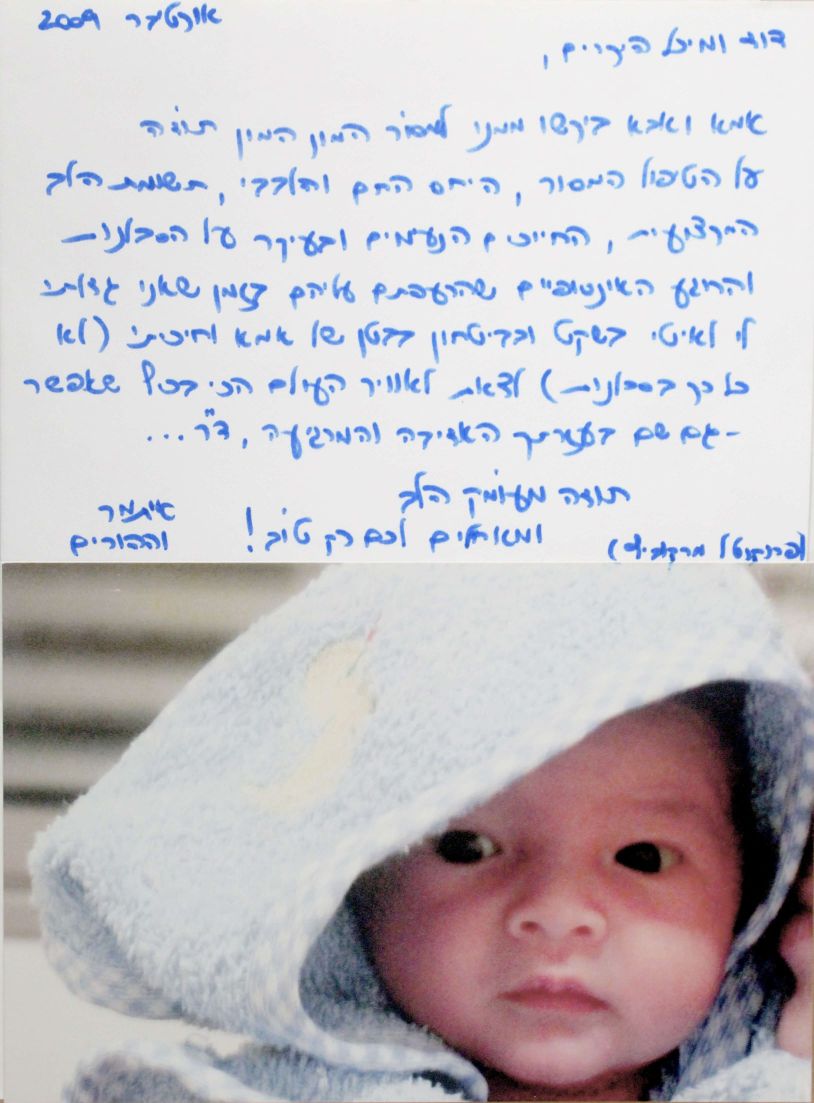 אוקטובר 2009
דוד ומיכל היקרים,
אמא ואבא ביקשו ממני למסור המון המון תודה
על הטיפול המסור, היחס החם והלבבי, תשומת הלב
המקצועית, החיוכים הנעימים ובעיקר על הסבלנות
והרוגע האינסופיים שהרעפתם עליהם בזמן שאני גדלתי
לי לאיטי בשקט ובביטחון בבטן של אמא וחיכיתי (לא
כל כך בסבלנות) לצאת לאוויר העולם הכי בכיף שאפשר
- גם שם בעזרתך האדיבה והמרגיעה, ד"ר...
תודה מעומק הלב
ומאחלים לכם רק טוב!
איתמר
וההורים